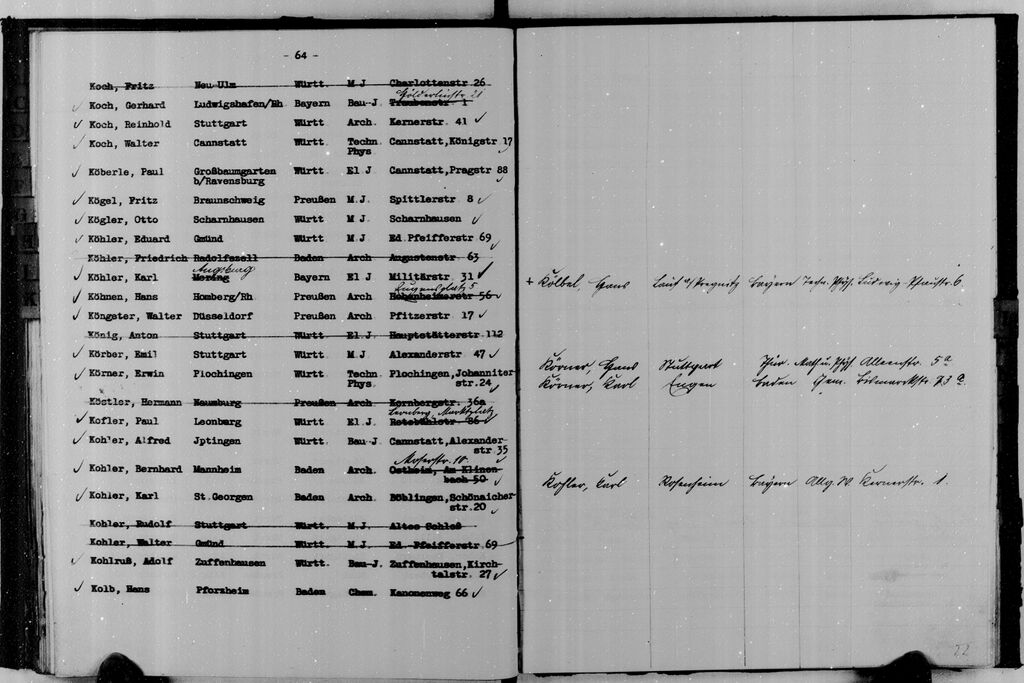 - 64 -
Koch, Fritz Neu Ulm Württ M J Charlottenstr 26
Hölderlinstr. 21
Koch, Gerhard Ludwigshafen/Rh Bayern Bau-J. Traubenstr 1
Koch, Reinhold Stuttgart Württ Arch. Kernerstr. 41
Koch, Walter Cannstatt Württ Techn. Cannstatt,Königstr 17
Phys
Köberle, Paul Großbaumgarten Württ El J Cannstatt,Pragstr 88
b/Ravensburg
Kögel, Fritz Braunschweig Preußen M.J. Spittlerstr 8
Kögler, Otto Scharnhausen Württ M J. Scharnhausen
Köhler, Eduard Gmünd Württ M.J Ed Pfeifferstr 69
Köhler, Friedrich Radolfszell Baden Arch Augustenstr 63
Augsburg
Köhler, Karl Mering Bayern El J Militärstr 31
Eugensplatz 5
Köhnen, Hans Homberg/Rh Preußen Arch Hohenheimerstr 56
Köngeter, Walter Düsseldorf Preußen Arch. Pfitzerstr 17
König, Anton Stuttgart Württ El.J. Hauptstätterstr 112
Körber, Emil Stuttgart Württ M.J Alexanderstr 47
Körner, Erwin Plochingen Württ Techn Plochingen,Johanniter-
Phys. str.24
Köstler, Hermann Naumburg Preußen Arch. Kornbergstr. 36a
Leonberg, Marktplatz
Kofler, Paul Leonburg Württ El.J. Rotebühlstr 86
Kohler, Alfred Jptingen Württ. Bau-J. Cannstatt,Alexander-
str 35
Moserstr. 10
Kohler, Bernhard Mannheim Baden Arch. Ostheim, Am Klinen-
bach 50
Kohler, Karl St.Georgen Baden Arch. Böblingen,Schönaicher-
str.20
Kohler, Rudolf Stuttgart Württ. M.J. Altes Schloß
Kohler, Walter Gmünd Württ. M J. Ed Pfeifferstr 69
Kohlruß, Adolf Zuffenhausen Württ. Bau-J. Zuffenhausen,Kirch-
talstr. 27
Kolb, Hans Pforzheim Baden Chem. Kanonenweg 66
+ Kölbel, Hans Lauf a/Pregnitz Bayern Techn. Phys. Ludwig-Pfaustr. 6
Körner, Hans Stuttgart Math u. Phys. Alleenstr. 5a
Körner, Karl Engen Baden Bismarckstr. 73 a.
Kohler, Karl Rosenheim Bayern Allg. W Kernerstr. 1.
22